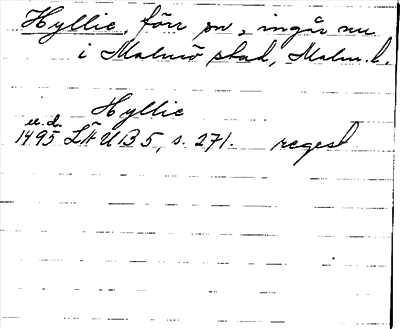 Hyllie, förr sn, ingår nu
i Malmö stad, Malm. l.
Hyllie
u. d.
1495 LÄUB 5, s. 271. regest